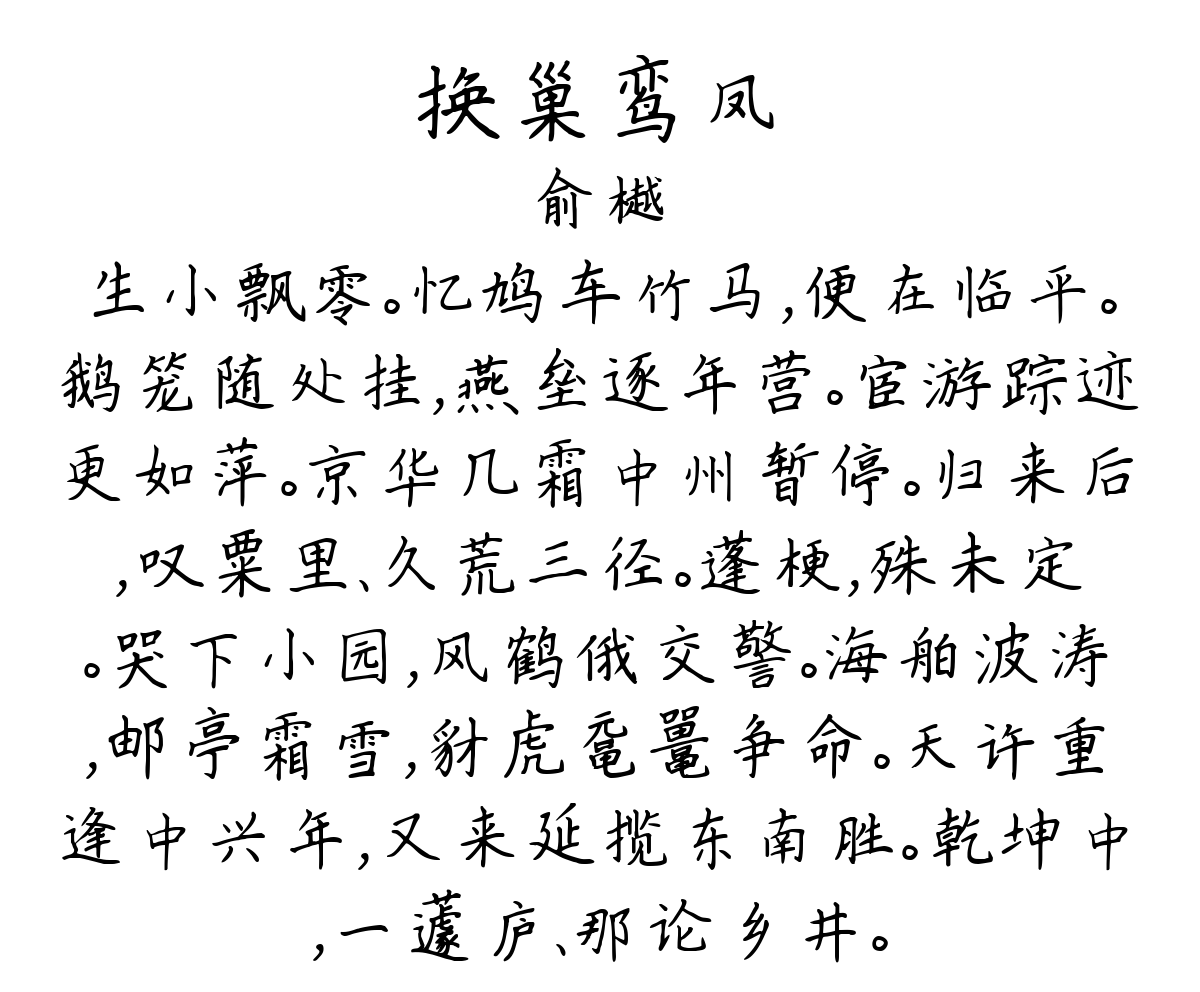 换巢鸾凤
俞樾
生小飘零。忆鸠车竹马,便在临平。
鹅笼随处挂,燕垒逐年营。宦游踪迹
更如萍。京华几霜中州暂停。归来后
,叹粟里、久荒三径。蓬梗,殊未定
。哭下小园,风鹤俄交警。海舶波涛
,邮亭霜雪,豺虎鼋鼍争命。天许重
逢中兴年,又来延揽东南胜。乾坤中
,一蘧庐、那论乡井。